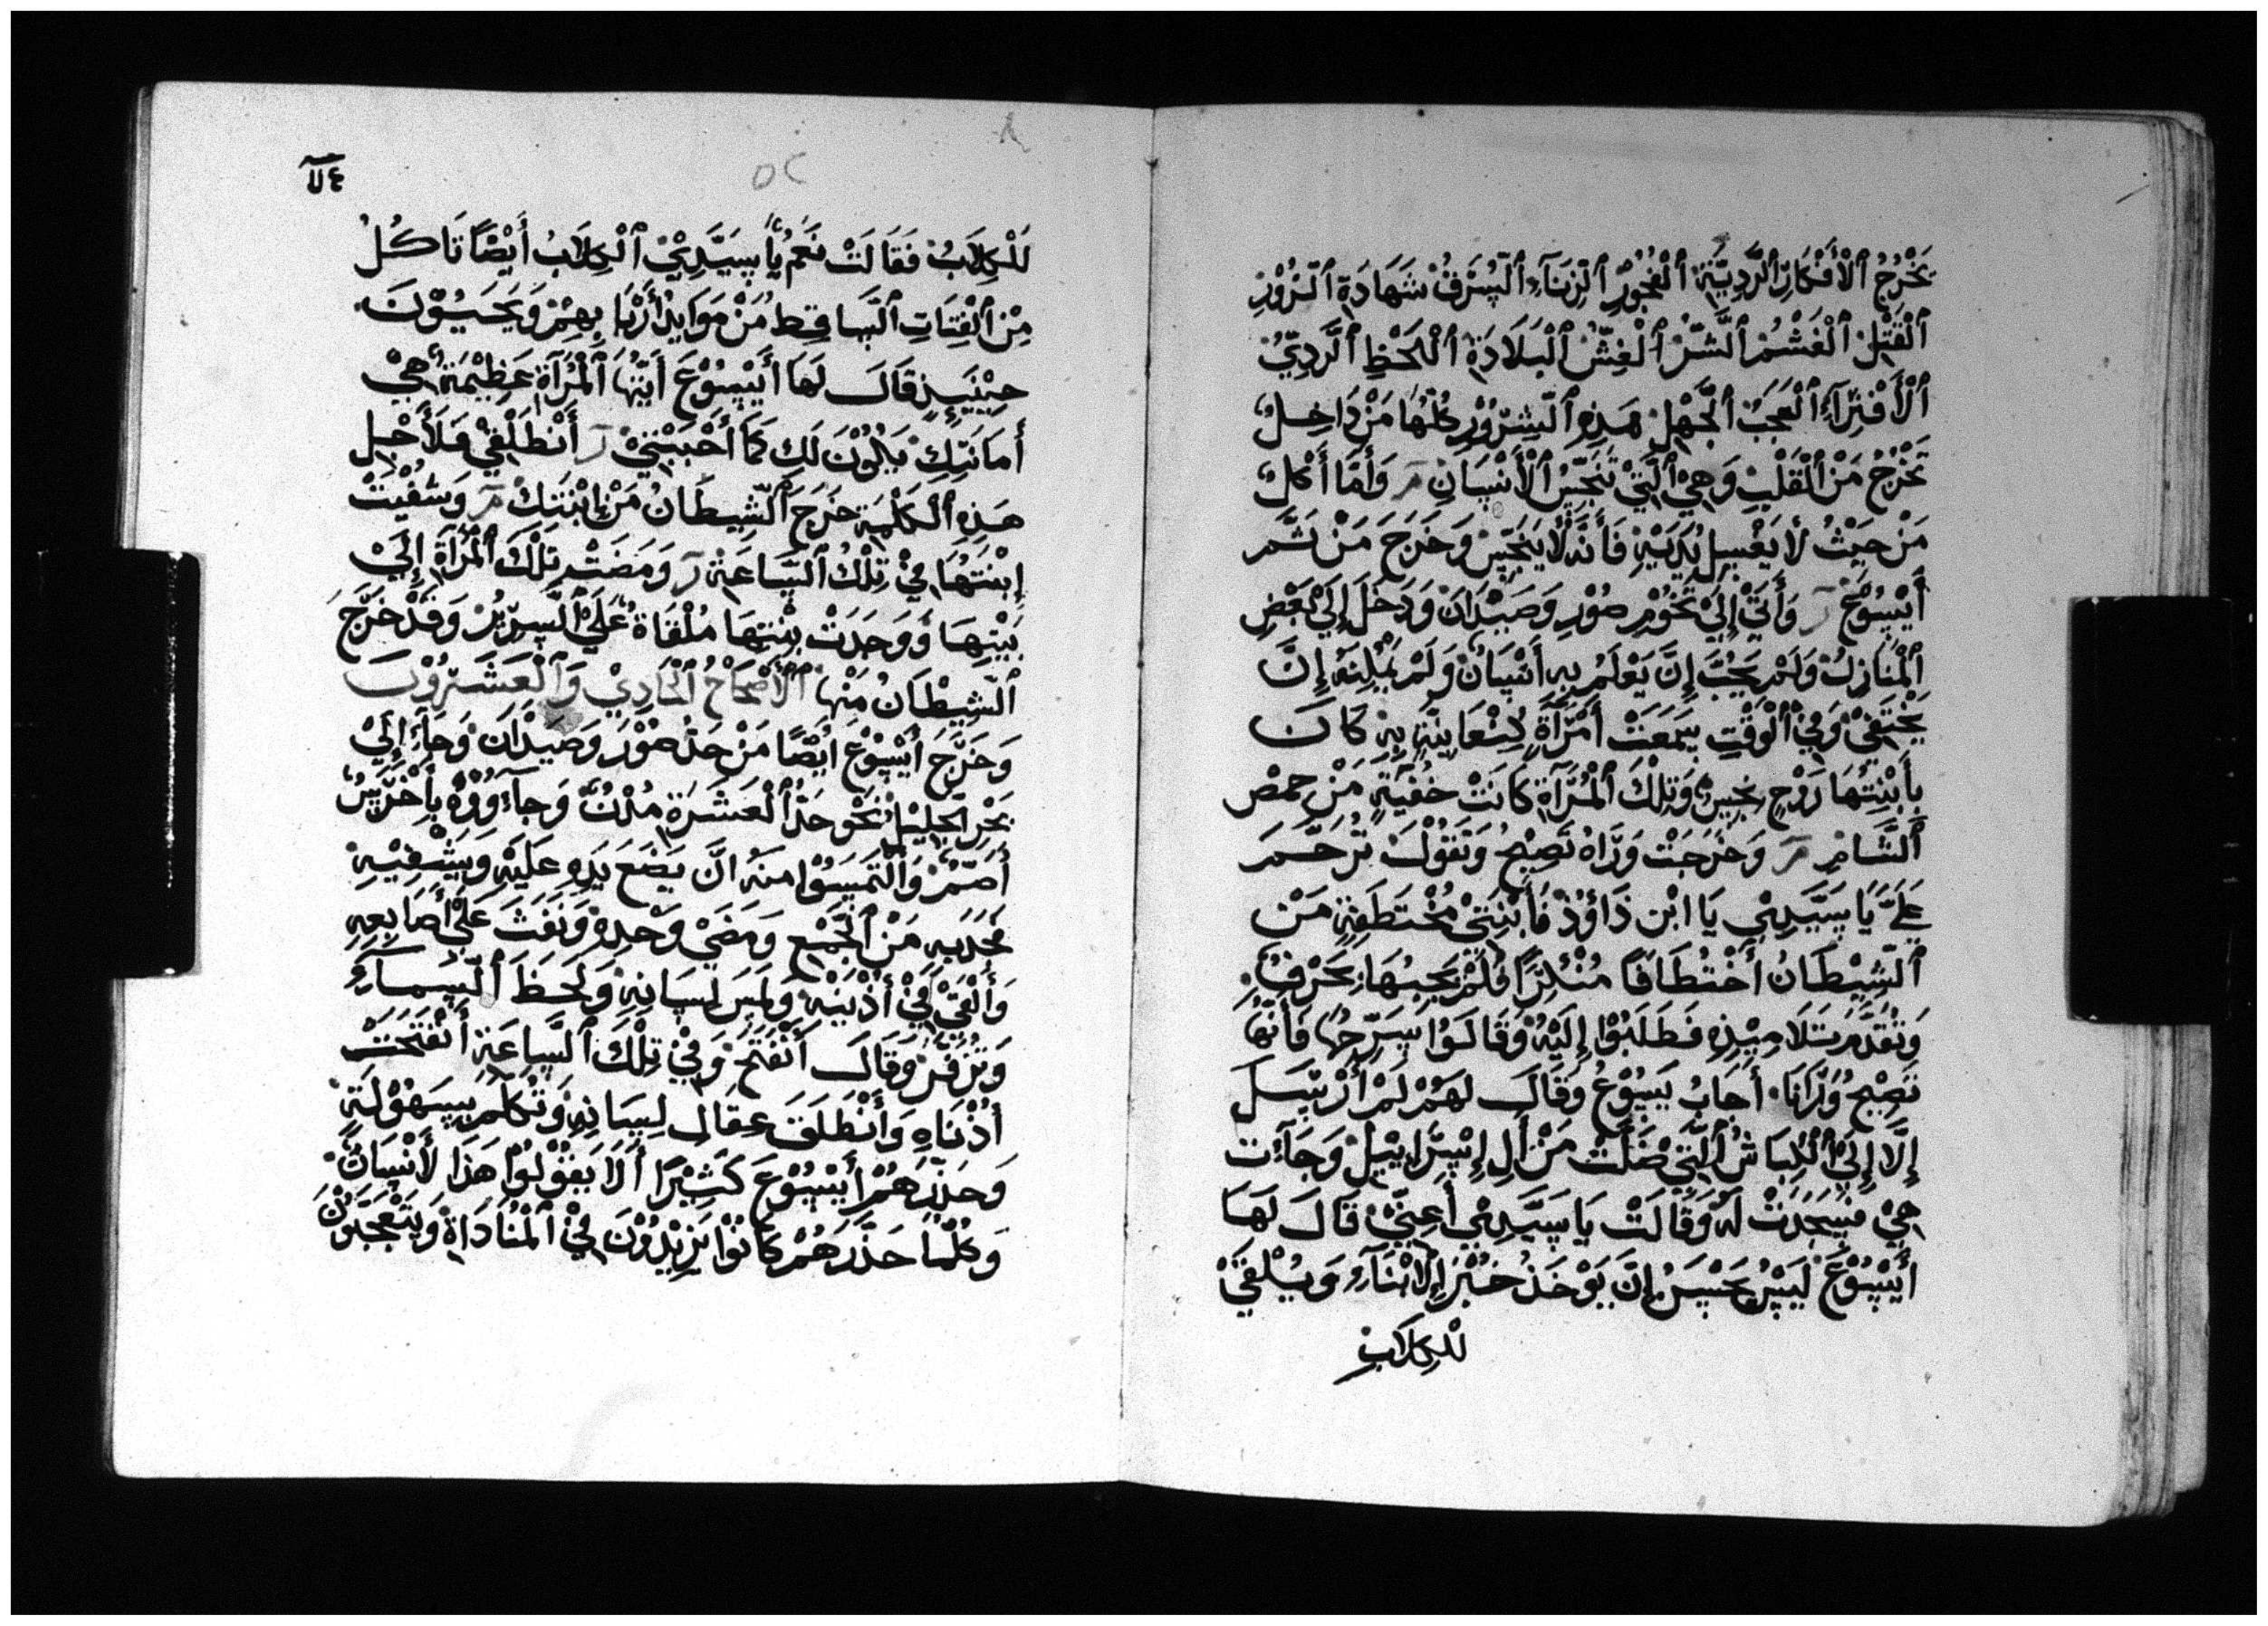 يَخْرُجُ ٱلْأَفْكَارِ ٱلرَّدِيَّةِ ٱلْفُجُوْرِ ٱلزِنَآءِ ٱلسَّرَقُ شَهَادَةِ ٱلزُوْرِ
ٱلْقَتْلِ ٱلْغَشْمُ ٱلشَّرُ ٱلْغِشُ ٱلْبَلَادَةِ ٱللَحْظِ ٱلرَّدِيِّ
ٱلْأَفْتِرَآءِ ٱلْعَجَبُ ٱلْجَهْلِ هَذِهِ ٱلشِرُوْرِ كُلُّهَا مَنْ دَاخِلٌ
تَخْرُجُ مَنْ ٱلْقَلْبِ وَهِيْ ٱلَّتِيْ تَنَجِّسُ ٱلْأَنْسَانِ مَر وَأَمَّا أَكْلٌ
مَنْ حَيْثُ لأَ يَغْسِلُ يَدَيْهِ فَأَنَّهُ لَأ يَنَجِّسْ وَخَرَجَ مَنْ ثَمَّر
أَيْسُوْعَ ر وَأَتَىْ إِلَىْ تَخُوْمِ صُوْرِ وَصَيْدَانْ وَدَخَلَ إِلَىْ بَعْضِ
ٱلْمَنَازِلْ وَلَمْ يَحُبَّ إِنَّ يَعْلَمُ بِهِ أَنْسَانٌ وَلَمْ يُمْكِنَهُ إِنَّ
يَخْتَفِيْ وَفِيْ ٱلْوَقْتِ سِمَعَتْ أَمْرَآةٍ كِنْعَانِيَّةٍ بِهِ كَانَ
بِأَبْنِتُهَا رَوْحٍ نَجِسٍ وَتِلْكَ ٱلْمُرَآةِ كَانَتْ حَنْفِيَةٍ مَنْ حِمْصِ
ٱلشَّامِ مَر وَخَرَجَتْ وَرَّاهُ تَصِيْحُ وَتَقُوْلُ تَرْحَّمَر
عَلَيَّ يَا سَيِّدِيْ يَا ابْن دَاؤُدْ فَأَبْنِتَىْ مُخْتَطَفِةٍ مَنْ
ٱلشِيْطَانُ أَخْتُطَافًا مُنْكِرًا فَلَمْ يَجِبْهَا بَحَرْفٍ.
وَتَقَدَّمَ تَلَامِيْذِهِ فَطَلَبُوْا إِلَيْهِ وَقَالَوُا سَرِّحْهَا فَأَنَّهَا
تَصِيْحُ وَرَّانَا. أَجَابُ يَسُوْعُ وَقَالَ لَهُمْ لَمْ أُرْسَلَ
إِلَّا إِلَىْ ٱلْكِبَاشُ ٱلَّتِيْ ضَلَّتْ مَنْ أَلِ إِسْرَايِيْلْ وَجَآءَت
هِيْ فَسَجَدَتْ لَهُ وَقَالَتْ يَا سَيِّدِيْ أَعِنِّيْ قَالَ لَهَا
أَيْسُوْعَ لَيْسْ يَحَسِنُ إِنَّ يَوْخَذُ خُبْزَ إِلَابْنَآءِ وَيُلْقَىْ
للْكِلَابْ
٧٤
٥٢
لَلْكِلَابُ فَقَالَتْ نَعَمْ يَا سَيَّدِيْ ٱلْكِلَابُ أَيْضًا تَاكُلُ
مِنْ ٱلْفِتَاتِ ٱلسَّاقِطُ مَنْ مَوَايِدْ أَرْبَا بِهِمْ وَيَحَيُوْنَ.
حِيْنَيِذٍ قَالَ لَهَا أَيْسُوْعَ أَيَّتُهَا ٱلْمُرَآةِ عَظِيْمَةٌ هِيْ
أَمَانَتِكِ يَكُوْنَ لَكِ كَمَا أَحْبَبْتِيْ ر أَنْطَلَقِيْ فَلأَجْلِ
هَذِهِ ٱلْكَلْمِةِ خَرَجَ ٱلشِيْطَانُ مَنْ إِبْنَتِكْ مَر وَشَفْيَتْ
إِبْنَتُهَا فِيْ تِلْكُ ٱلسَّاعَةِ ر وَمَضَتْ تِلْكَ ٱلْمُرَآةِ إِلَىْ
بَيْتِهَا وَوَجَدَتْ بِنْتِهَا مُلْقَاةٌ عَلَىْ ٱلسِرِيْرُ وَقَدْ خَرَّجَ
ٱلشِيْطَانُ مَنْهَا ٱلْأَصْحَاحُ ٱلْحَادِيْ وَٱلْعَشَرُوْنَ
وَخَرَّجَ أَيْسُوْعَ ايْضًا مَنْ حَدْ صُوْرْ وَصَيْدَانْ وَجَآءَ إِلَىْ
بَحْرِ ٱلْجَلِيْلْ نَحْوِ حَدُ ٱلْعَشَرَةِ مُدُنٌ وَجآءَوُوْهُ بِأَخْرَسٍ
أَصَمٌّ وَٱلْتَمَسَوُا مَنْهُ انَّ يَضَعَ يَدِهِ عَلَيْهِ وَيَشْفِيْهِ
فَجَذَبهِ مَنْ ٱلْجَمْعِ وَمَضَىْ وَحْدِهِ وَتَفَثَ عَلَىْ أَصَابِعِهِ
وَأَلْقَىْ فِيْ أُذْنَيْهِ وَلَمَسَ لِسَانِهِ وَلَحَظَ ٱلسَمَآءِ
وَتَزَفَّرْ وَقَالَ أَنْفَتَحْ وَفِيْ تِلْكَ ٱلسَّاعَةِ أَنْفَتَحَتْ
أُذْنَاهِ وَأَنْطَلَقَ عِقَالِ لِسَانِهِ وَتُكَلَّمَ بِسَهُوْلَةٍ.
وَحَذَّرَهُمْ أَيْسُوْعَ كَثِيْرًا أَلَا يَقُوْلُوْا هَذَا لأَنْسَانٌ.
وَكُلَّمَا حَذَّرَهُمْ كَانُوْا يَزِيْدُوْنَ فِيْ ٱلْمُنَادَاةِ وَيَتْعَجَّبُوْنَ